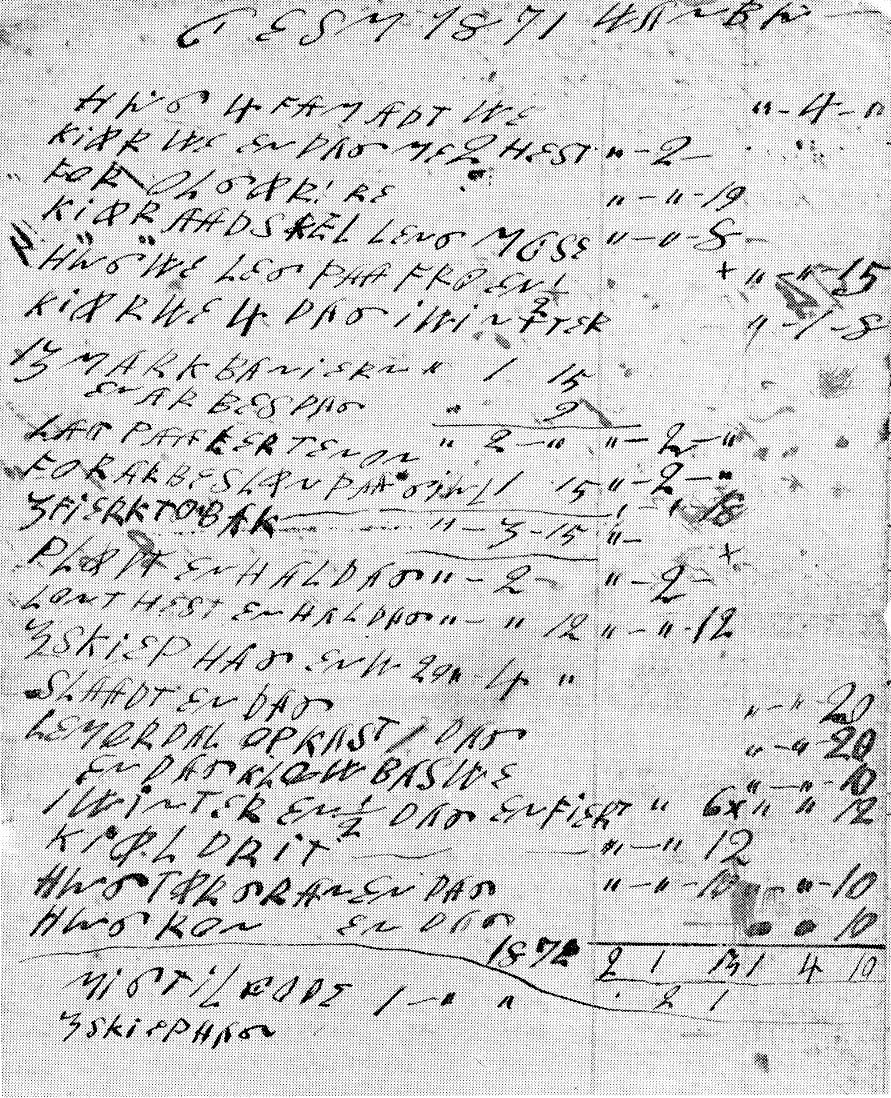 1871
HWG 4 FAM ADT WE " - 4 - "
KIØR WE EN DAG ME 2 HEST " - 2 -
FOR OLGØR! RE " - " - 19
KIØR AADSKEL LENG MOSE " - " - 8 -
" " HWG WE LEG PAA FRØ EN 1/2 x " - " - 15
KIØR WE 4 DAG I WINTTER " - 1 - 8
13 MARK BANIERN " 1 15
EN ARBESDAG " 9
LAG PAA KERTENON " 2 - " " - 2 - "
FOR ARBESLØN PAA 1 15 " - 2 - "
3 FIERK TOBAK " - 3 - 15 " - 18
PLØIT EN HAL DAG " - 2 - " - 2 - x
LONT HEST EN HAL DAG " - " 12 " - " - 12
3 SKIEP HAG EN W 20 " - 4 "
SLAADT EN DAG " - " 20
LEMØRDAL OPKAST 1 DAG " - " - 20
EN DAG KLØW BAS WE " - " - 10
I WINTER EN 1/2 DAG EN FIERT " 6 x " " 12
KIØL DRIT " - " 12
HWG TØRGRAN EN DAG " - " - 10 " - 10
HWG KON EN DAG 10
1872 2 1 131 4 10
MIG TIL KODE 1 - " " 2 1
3 SKIEP HAG